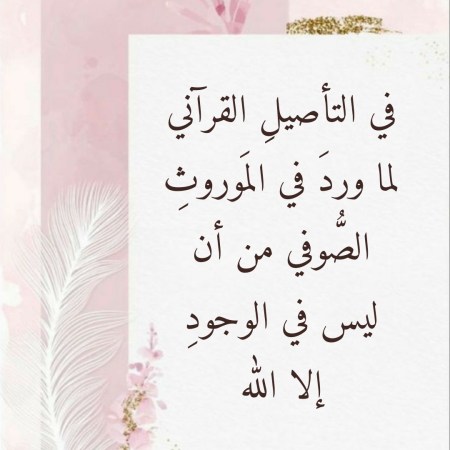 في التأصيلِ القرآني
لما وردَ في المَوروثِ
الصُّوفي من أن
ليس في الوجودِ
إلا الله